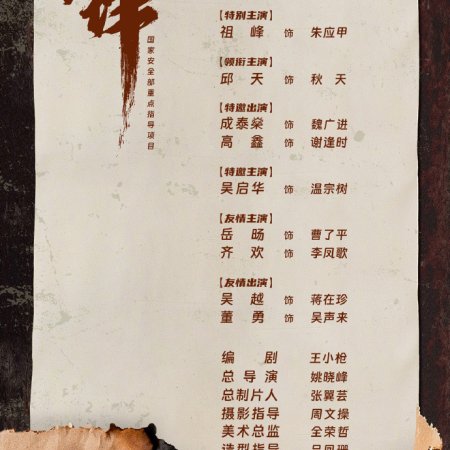 国家安全部重点指导项目
【特别主演】
祖峰 饰 朱应甲
【领衔主演】
邱天 饰 秋天
【特邀出演】
成泰燊 饰 魏广进
高鑫 饰 谢逢时
【特邀主演】
吴启华 饰 温宗树
【友情主演】
岳旸 饰 曹了平
齐欢 饰 李凤歌
【友情出演】
吴越 饰 蒋在珍
董勇 饰 吴声来
编剧 王小枪
总导演 姚晓峰
总制片人 张翼芸
摄影指导 周文操
美术总监 全荣哲
造型指导